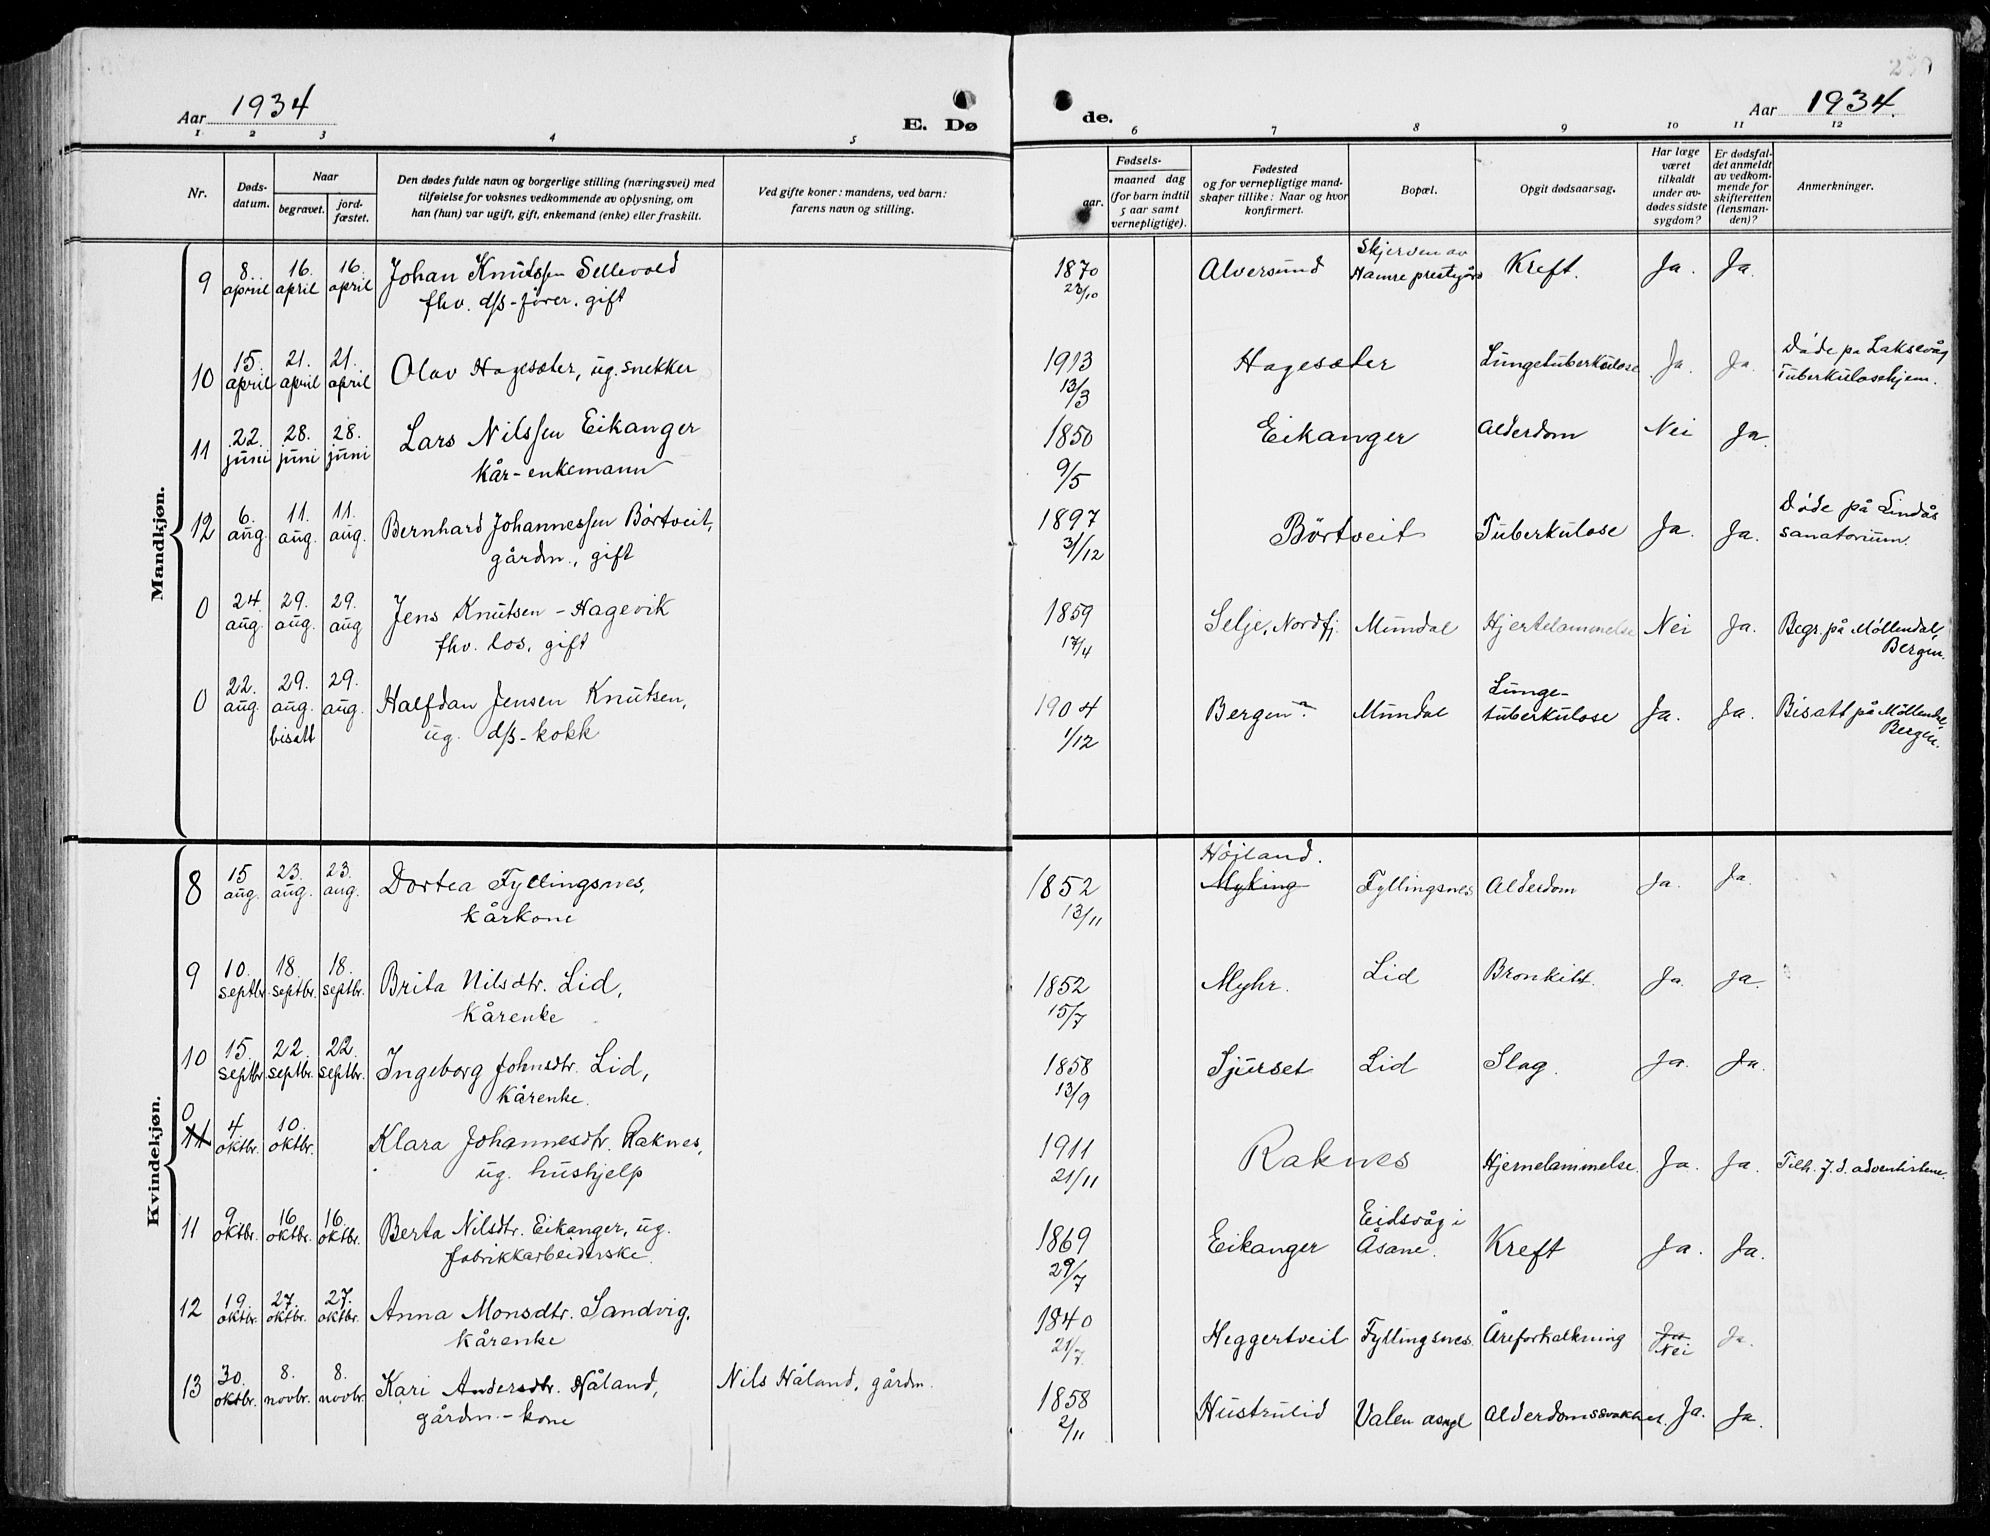 Aar 1934
E. Dø
de.
Aar 1934.
1 2 3 4 5 6 7 8 9 10 11 12
Nr.
Døds-
datum.
Naar
begravet.
jord-
fæstet.
Den dødes fulde navn og borgerlige stilling (næringsvei) med
tilføielse for voksnes vedkommende av oplysning, om
han (hun) var ugift, gift, enkemand (enke) eller fraskilt.
Ved gifte koner: mandens, ved barn:
farens navn og stilling.
Fødsels-
aar.
maaned dag
(for barn indtil
5 aar samt
vernepligtige).
Fødested
og for vernepligtige mand-
skaper tillike: Naar og hvor
konfirmert.
Bopæl.
Opgit dødsaarsag.
Har læge
været
tilkaldt
under av-
dødes sidste
sygdom?
Er dødsfal-
det anmeldt
av vedkom-
mende for
skifteretten
(lensman-
den)?
Anmerkninger.
Mandkjøn.
9 8. april 16. april 16. april Johan Knutssen Sellevold
fhv. d/s-fører. gift
1870 23/10 Alversund Skjerven av
Hamre prestegård Kreft. Ja. Ja.
10 15. april 21. april 21. april Olav Hagesæter, ug. snekker
1913 13/3 Hagesæter Lungetuberkulose Ja. Ja. Døde på Laksevåg
Tuberkulosehjem.
11 22. juni 28. juni 28. juni Lars Nilssen Eikanger
kår-enkemann
1850 9/5 Eikanger Alderdom Nei Ja.
12 6. aug. 11. aug. 11. aug. Bernhard Johannessen Børtveit,
gårdm., gift
1897 31/12 Børtveit Tuberkulose Ja. Ja. Døde på Lindås
sanatorium.
0 24 aug. 29. aug. 29. aug Jens Knutsen - Hagevik
fhv. los, gift
1859 17/4 Selje, Nordfj. Mundal Hjertelammelse Nei Ja. Begr. på Møllendal,
Bergen.
0 22. aug. 29. aug. bisatt 29. aug. Halfdan Jensen Knutsen,
ug. d/s-kokk
1904 1/12 Bergen? Mundal Lunge-
tuberkulose Ja. Ja. Bisatt på Møllendal,
Bergen.
Kvindekjøn.
8 15 aug. 23. aug. 23. aug. Dortea Fyllingsnes,
kårkone
1852 13/11 Højland.
Myking Fyllingsnes Alderdom Ja. Ja.
9 10. septbr. 18. septbr. 18. septbr. Brita Nilsdtr. Lid,
Kårenke
1852 15/7 Myhr. Lid Bronkitt. Ja. Ja.
10 15. septbr. 22. septbr. 22. septbr. Ingeborg Johnsdtr. Lid,
Kårenke.
1858 13/9 Sjurset Lid Slag. Ja. Ja.
0
11 4 oktbr. 10. oktbr. Klara Johannesdtr. Raknes,
ug. hushjelp
1911 21/11 Raknes Hjernelammelse. Ja. Ja. Tilh. 7. d. adventistene
11 9 oktbr. 16 oktbr. 16. oktbr. Berta Nilsdtr. Eikanger, ug.
fabrikkarbeiderske.
1869 29/7 Eikanger Eidsvåg i
Åsane. Kreft Ja. Ja.
12 19. oktbr. 27. oktbr. 27. oktbr. Anna Monsdtr. Sandvig,
Kårenke
1840 21/7 Heggertveit Fyllingsnes. Åreforkalkning Ja
Nei Ja.
13 30. oktbr. 8. novbr. 8. novbr. Kari Andersdtr. Håland,
gårdm.-kone
Nils Håland, gårdm.
1858 2/11 Hustrulid Valen Alderdomssvakhet. Ja. Ja.